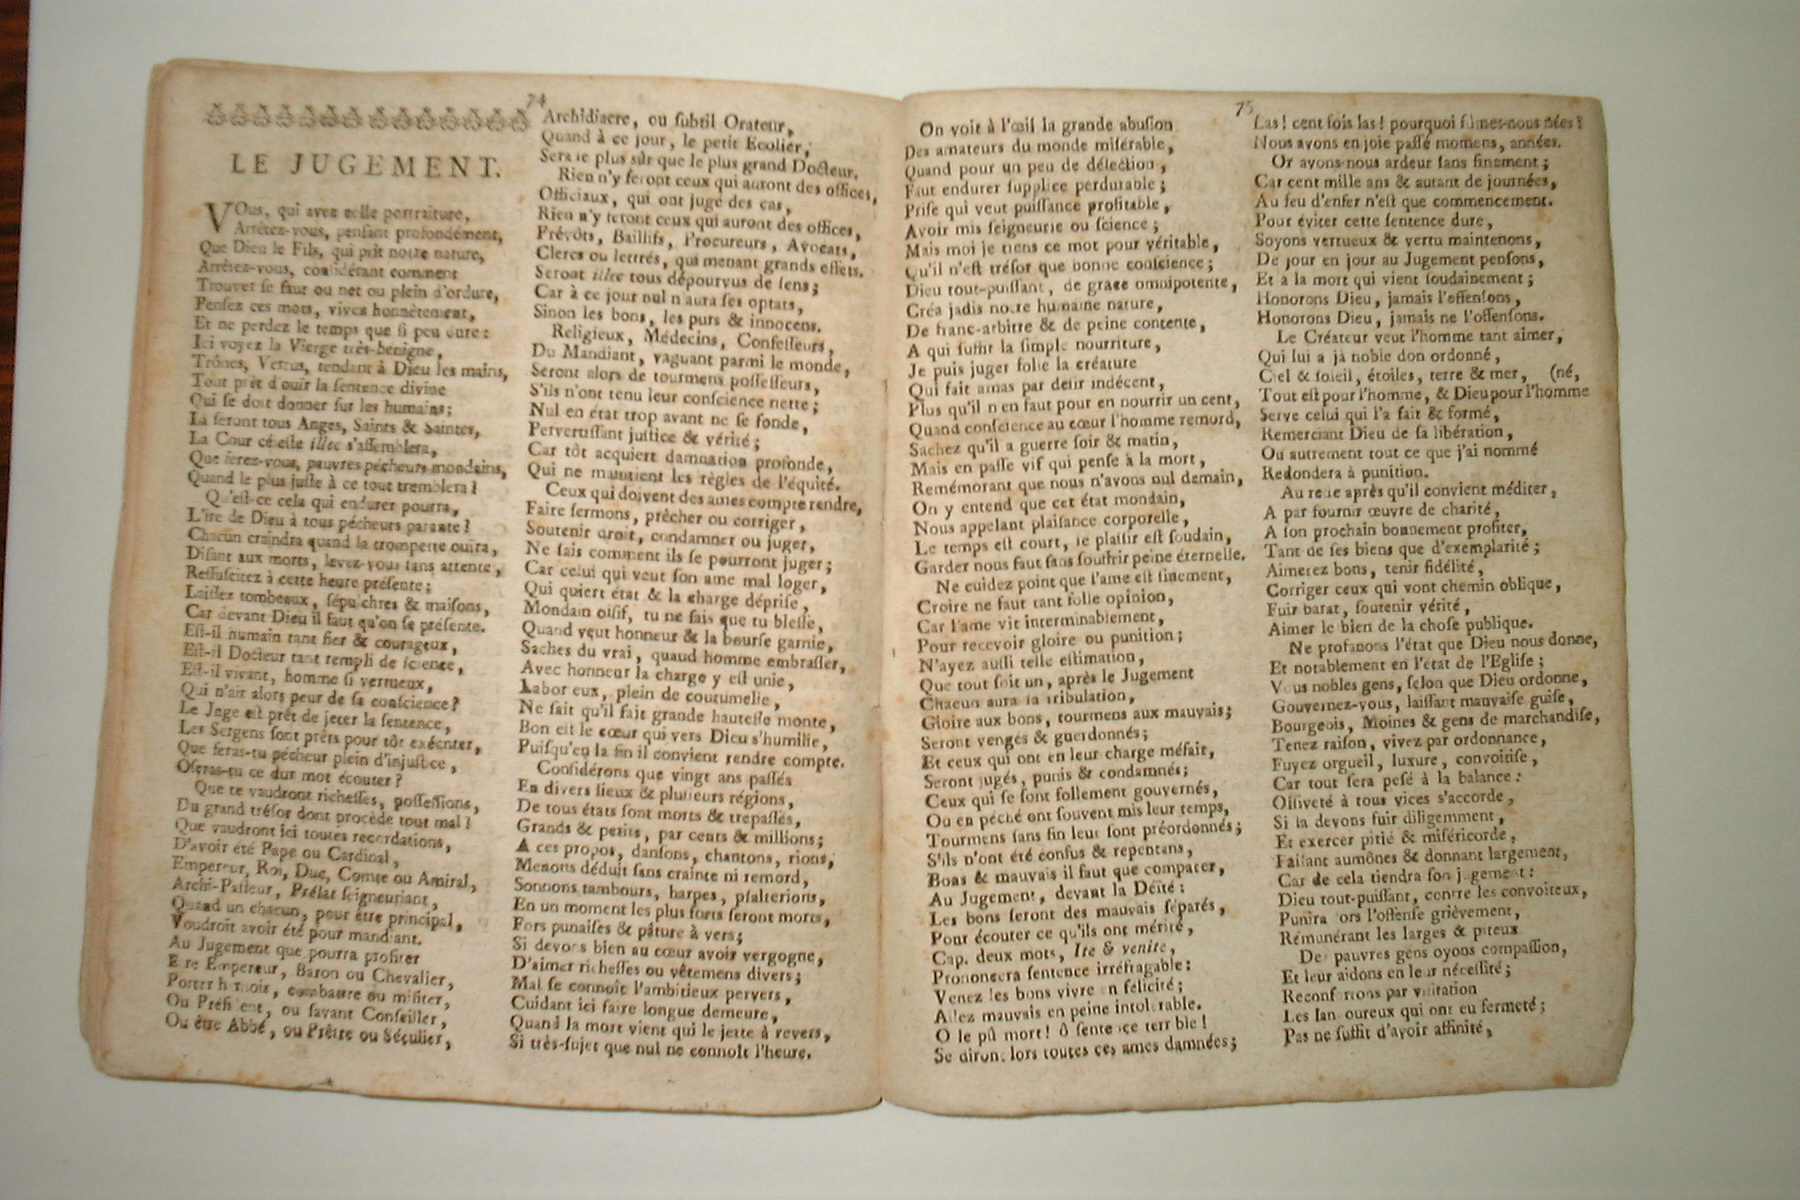 74
LE JUGEMENT.
VOus, qui avez telle portraiture,
Arrêtez-vous, pensant profondément,
Que Dieu le Fils, qui prit notre nature,
Arrêtez-vous, considérant comment
Trouver se faut ou net ou plein d'ordure,
Pensez ces mots, vivez honnêtement,
Et ne perdez le temps que si peu dure :
Ici voyez la Vierge très-benigne,
Trônes, Vertus, tendant à Dieu les mains,
Tout prêt d'ouir la sentence divine
Qui se doit donner sur les humains;
La seront tous Anges, Saints & Saintes,
La Cour céleste illec s'assemblera,
Que ferez-vous, pauvres pécheurs mondains,
Quand le plus juste à ce tout tremblera ?
Qu'est-ce cela qui endurer pourra,
L'ire de Dieu à tous pécheurs parante ?
Chacun craindra quand la trompette ouira,
Disant aux morts, levez-vous sans attente,
Ressuscitez à cette heure présente;
Laissez tombeaux, sépulchres & maisons,
Car devant Dieu il faut qu'on se présente.
Est-il humain tant fier & courageux,
Est-il Docteur tant rempli de science,
Est-il vivant, homme si vermeux,
Qui n'air alors peur de sa conscience ?
Le Juge est prêt de jeter la sentence,
Les Sergens sont prêts pour tôt exécuter,
Que feras-tu pécheur plein d'injustice,
Oseras-tu ce dur mot écouter ?
Que te vaudront richesses, possessions,
Du grand trésor dont procède tout mal ?
Que vaudront ici toutes recordations,
D'avoir été Pape ou Cardinal,
Empereur, Roi, Duc, Comte ou Amiral,
Archi-Pasteur, Prélat seigneuriant,
Quand un chacun, pour être principal,
Voudroit avoir été pour mandiant.
Au Jugement que pourra profiter
Etre Empereur, Baron ou Chevalier,
Porter harnois, combattre ou militer,
Ou Président, ou savant Conseiller,
Ou être Abbé, ou Prêtre ou Séculier,
Archidiacre, ou subtil Orateur,
Quand à ce jour, le petit Ecolier,
Sera le plus sûr que le plus grand Docteur.
Rien n'y feront ceux qui auront des offices,
Officiaux, qui ont jugé des cas,
Rien n'y feront ceux qui auront des offices,
Prévôts, Baillifs, Procureurs, Avocats,
Clercs ou lettrés, qui menant grands effets.
Seront illec tous dépourvus de sens;
Car à ce jour nul n'aura ses optats,
Sinon les bons, les purs & innocens.
Religieux, Médecins, Confesseurs,
Du Mandiant, vaguant parmi le monde,
Seront alors de tourmens possesseurs,
S'ils n'ont tenu leur conscience nette;
Nul en état trop avant ne se fonde,
Pervertissant justice & vérité;
Car tôt acquiert damnation profonde,
Qui ne maintient les règles de l'équité.
Ceux qui doivent des ames compte rendre,
Faire sermons, prêcher ou corriger,
Soutenir droit, condamner ou juger,
Ne sais comment ils se pourront juger;
Car celui qui veut son ame mal loger,
Qui quiert état & la charge déprise,
Mondain oisif, tu ne sais que tu blesse,
Quand veut honneur & la bourse garnie,
Saches du vrai, quaud homme embrasser,
Avec honneur la charge y est unie,
Laborieux, plein de coutumelie,
Ne sait qu'il fait grande hautesse monte,
Bon est le cœur qui vers Dieu s'humilie,
Puisqu'en la fin il convient rendre compte.
Considérons que vingt ans passés
En divers lieux & plusieurs régions,
De tous états sont morts & trepassés,
Grands & petits, par cents & millions;
A ces propos, dansons, chantons, rions,
Menons déduit sans crainte ni remord,
Sonnons tambours, harpes, psalterions,
En un moment les plus forts seront morts,
Fors punaises & pâture à vers;
Si devons bien au cœur avoir vergogne,
D'aimer richesses ou vêtemens divers;
Mal se connoît l'ambitieux pervers,
Cuidant ici faire longue demeure,
Quand la mort vient qui le jette à revers,
Si très-sujet que nul ne connoît l'heure.
75
On voit à l'œil la grande abusion
Des amateurs du monde misérable,
Quand pour un peu de délection,
Faut endurer supplice perdurable;
Prise qui veut puissance profitable,
Avoir mis seigneurie ou science;
Mais moi je tiens ce mot pour véritable,
Qu'il n'est trésor que bonne conscience;
Dieu tout-puissant, de grace omnipotente,
Créa jadis notre humaine nature,
De franc-arbitre & de peine contente,
A qui suffit la simple nourriture,
Je puis juger folie la créature
Qui fait amas par desir indécent,
Plus qu'il n'en faut pour en nourrir un cent,
Quand conscience au cœur l'homme remord,
Sachez qu'il a guerre soir & matin,
Mais en passe vif qui pense à la mort,
Remémorant que nous n'avons nul demain,
On y entend que cet état mondain,
Nous appelant plaisance corporelle,
Le temps est court, le plaisir est soudain,
Garder nous faut sans souffrir peine éternelle.
Ne cuidez point que l'ame est finement,
Croire ne faut tant folle opinion,
Car l'ame vit interminablement,
Pour recevoir gloire ou punition;
N'ayez aussi telle estimation,
Que tout soit un, après le Jugement
Chacun aura sa tribulation,
Gloire aux bons, tourmens aux mauvais;
Seront vengés & guerdonnés;
Et ceux qui ont en leur charge méfait,
Seront jugés, punis & condamnés;
Ceux qui se sont follement gouvernés,
Ou en péché ont souvent mis leur temps,
Tourmens sans fin leur sont préordonnés;
S'ils n'ont été confus & repentans,
Bons & mauvais il faut que comparer,
Au Jugement, devant la Déité :
Les bons seront des mauvais séparés,
Pour écouter ce qu'ils ont mérité,
Cap. deux mots, Ite & venite,
Prononcera sentence irréfragable :
Venez les bons vivre en félicité;
Allez mauvais en peine intolérable.
O le pû mort ! ô sentence terrible !
Se diront lors toutes ces ames damnées;
Las ! cent fois las ! pourquoi fûmes-nous nées ?
Nous avons en joie passé momens, années.
Or avons-nous ardeur sans finement;
Car cent mille ans & autant de journées,
Au feu d'enfer n'est que commencement.
Pour éviter cette sentence dure,
Soyons vertueux & vertu maintenons,
De jour en jour au Jugement pensons,
Et à la mort qui vient soudainement;
Honorons Dieu, jamais l'offensons,
Honorons Dieu, jamais ne l'offensons.
Le Créateur veut l'homme tant aimer,
Qui lui a jà noble don ordonné,
Ciel & soleil, étoiles, terre & mer, (né,
Tout est pour l'homme, & Dieu pour l'homme
Serve celui qui l'a fait & formé,
Remerciant Dieu de sa libération,
Ou autrement tout ce que j'ai nommé
Redondera à punition.
Au reste après qu'il convient méditer,
A par fournir œuvre de charité,
A son prochain bonnement profiter,
Tant de ses biens que d'exemplarité;
Aimerez bons, tenir fidélité,
Corriger ceux qui vont chemin oblique,
Fuir barat, soutenir vérité,
Aimer le bien de la chose publique.
Ne profanons l'état que Dieu nous donne,
Et notablement en l'état de l'Eglise;
Vous nobles gens, selon que Dieu ordonne,
Gouvernez-vous, laissant mauvaise guise,
Bourgeois, Moines & gens de marchandise,
Tenez raison, vivez par ordonnance,
Fuyez orgueil, luxure, convoitise,
Car tout sera pesé à la balance :
Oisiveté à tous vices s'accorde,
Si la devons fuir diligemment,
Et exercer pitié & miséricorde,
Faisant aumônes & donnant largement,
Car de cela tiendra son jugement :
Dieu tout-puissant, contre les convoiteux,
Punira lors l'offense grièvement,
Rémunérant les larges & piteux
Des pauvres gens oyons compassion,
Et leur aidons en leur nécessité;
Reconfortons par visitation
Les langoureux qui ont eu fermeté;
Pas ne suffit d'avoir affinité,